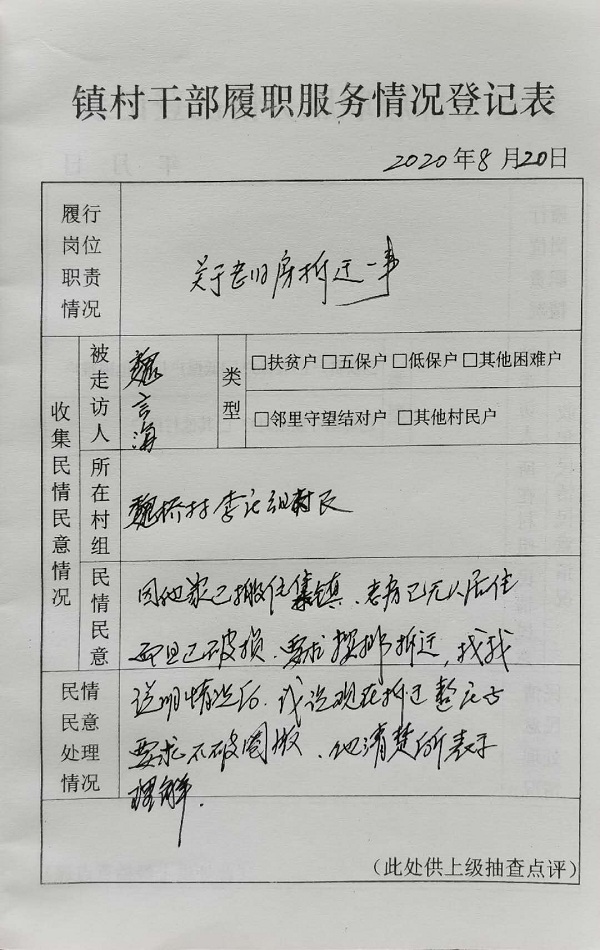 镇村干部履职服务情况登记表
2020年8月20日
履行岗位职责情况
关于老旧房拆迁一事
收集民情民意情况
被走访人
魏言海
类型
□扶贫户 □五保户 □低保户 □其他困难户
□邻里守望结对户 □其他村民户
所在村组
魏桥村李庄组村民
民情民意
因他家已搬住集镇、老房已无人居住
而且已破损、要求 拆迁，找我
民情民意处理情况
说明情况后，我说现在拆迁整庄
要求不破圈 、他清楚后表示
理解.
（此处供上级抽查点评）